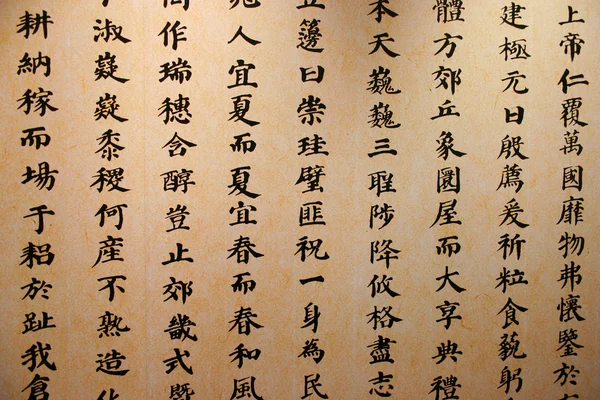 上帝仁覆萬國靡物弗懷鑒於
建極元日殷薦爰祈粒食藐躬
體方郊丘象圜屋而大享典禮
本天巍巍三陟降攸格盡志
籩曰崇珪璧匪祝一身為民
人宜夏而夏宜春而春和風
作瑞穗含醇豈止郊畿式暨
淑嶷嶷黍稷何產不熟造化
耕納稼而場于耜於趾我倉